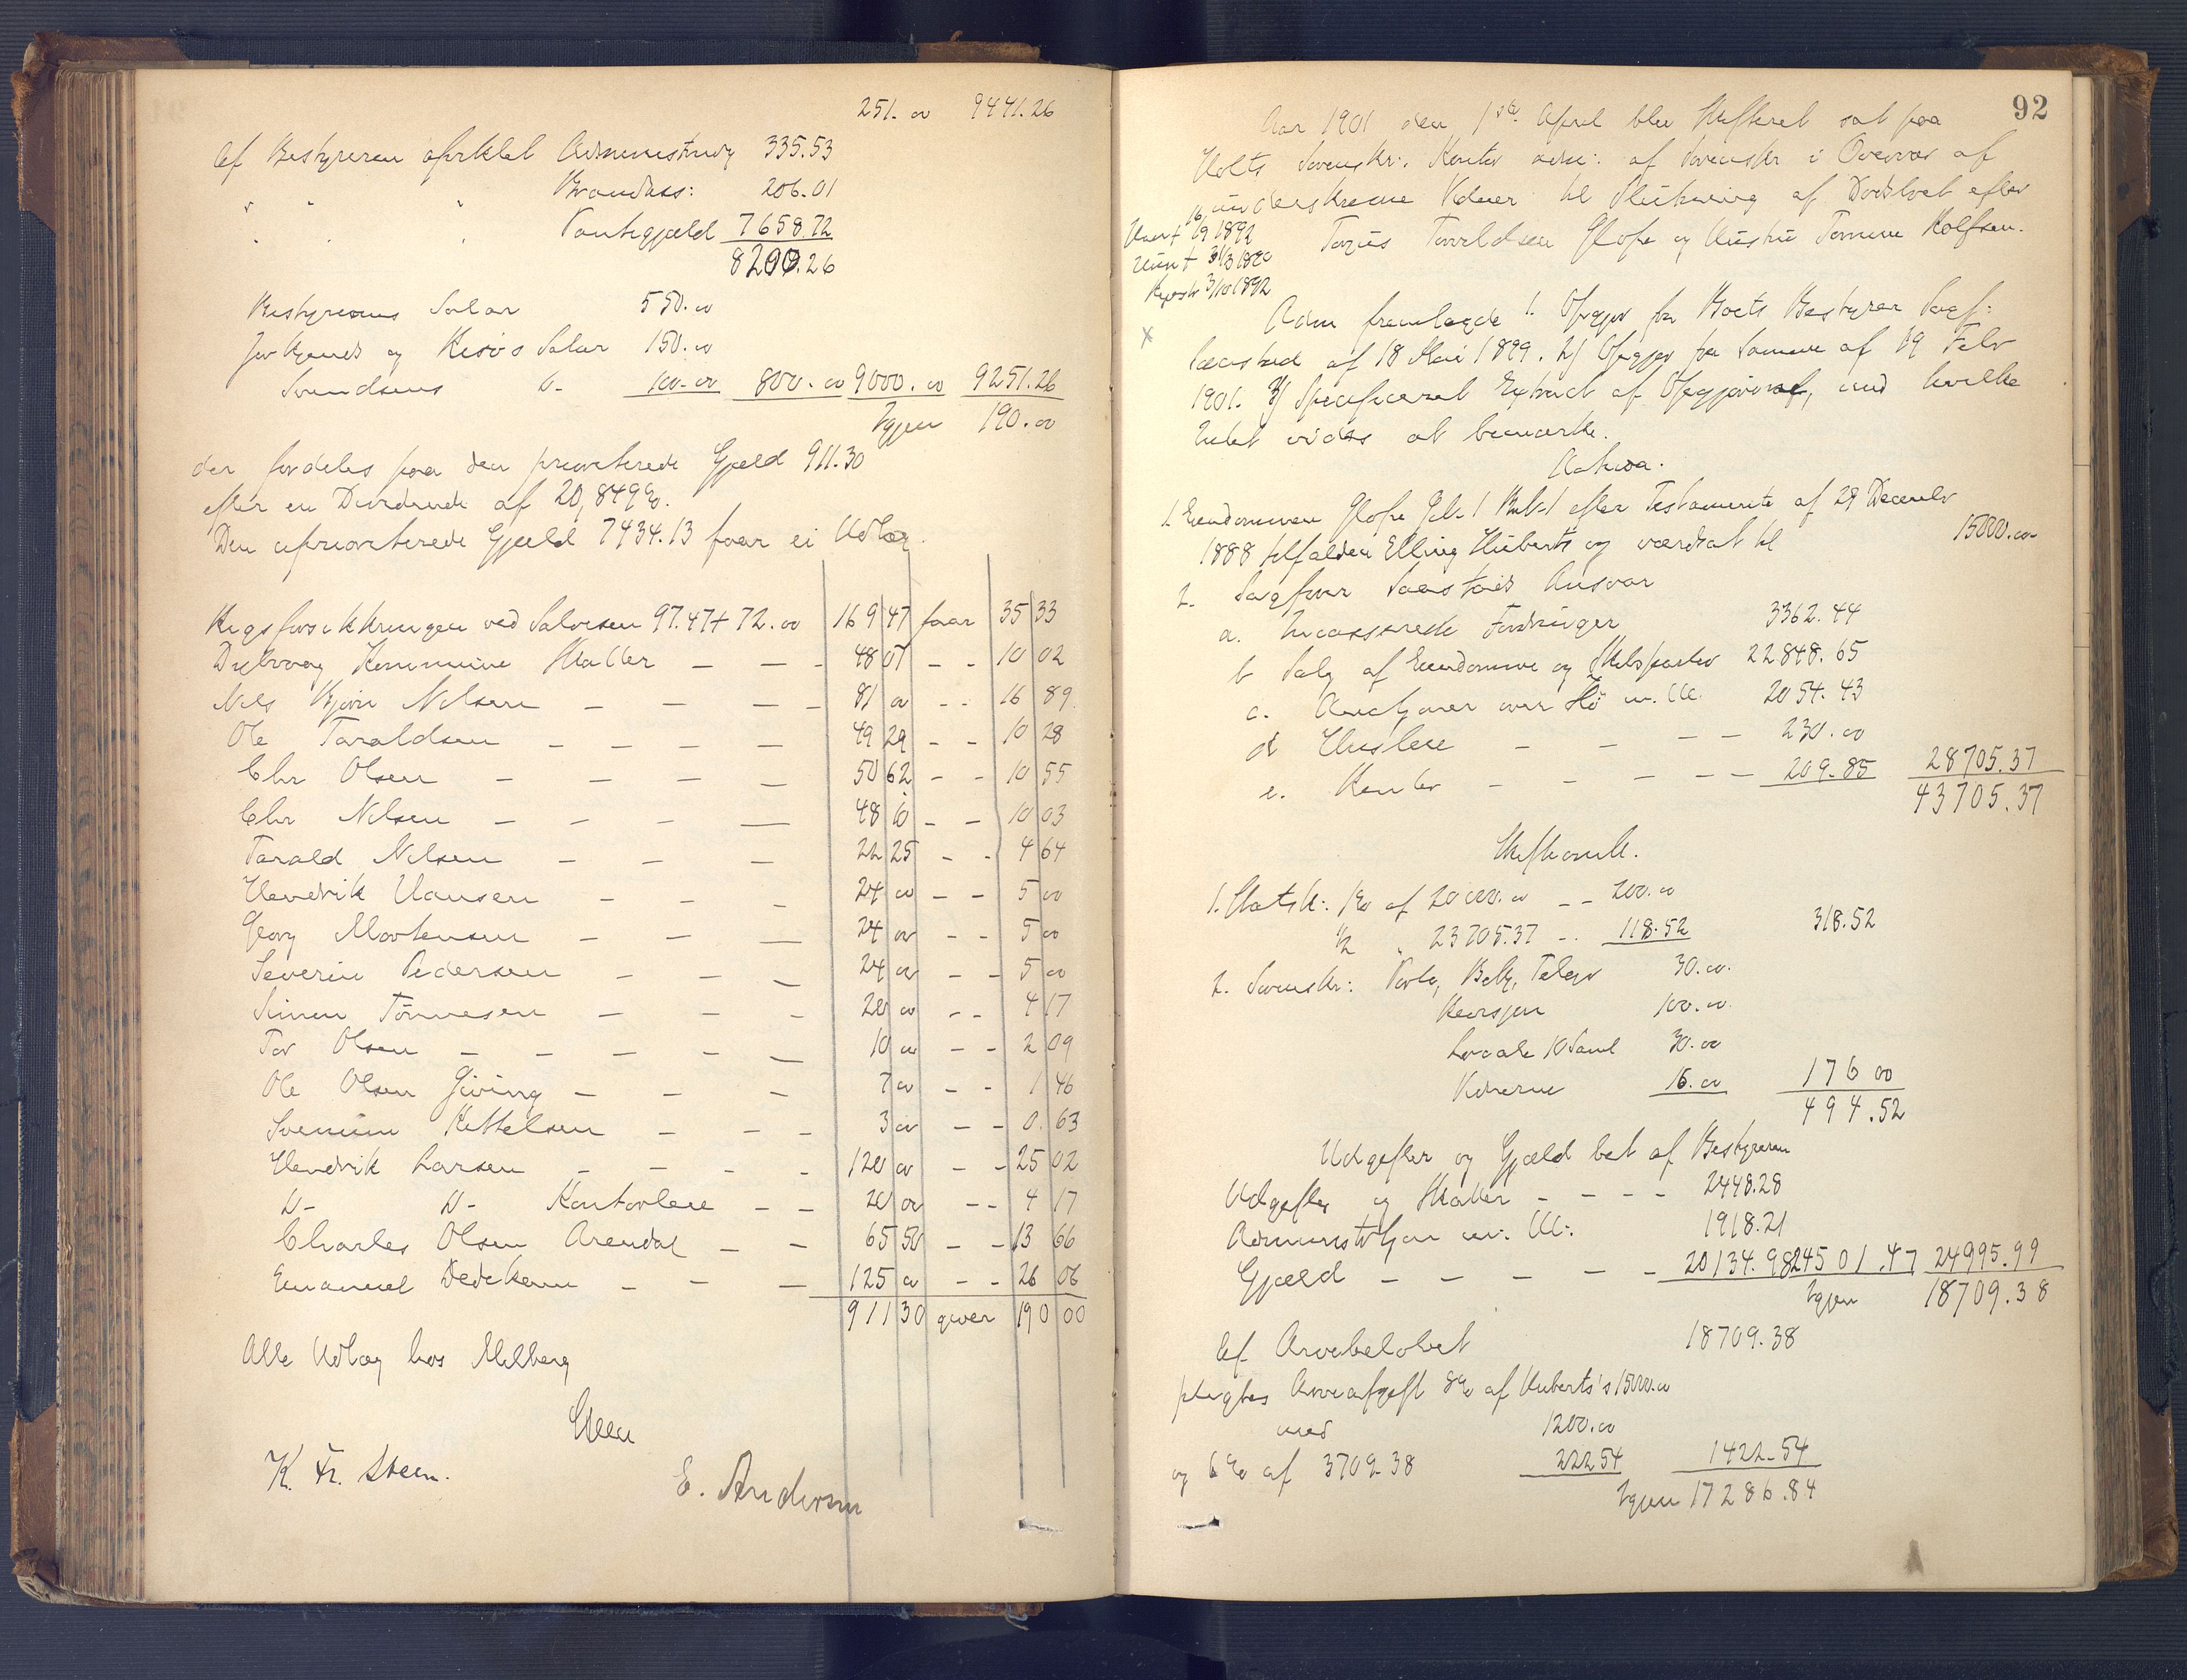 251. 00 9441.26
Af Bestyreren afviklet Administrng 335.53
" " " Brandass: 206.01
" " " Pantegjæld 7658.72
8200.26
Bestyrerens Salær 550.00
Salær 150.00
Svendsens Do- 100.00 800.00 9000.00 9251.26
Igjen 190.00
der fordeles paa den prioriterede Gjæld 911.30
efter en Dividende af 20,849%.
Den uprioriterede Gjæld 7434.13 faar ei Udlæg.
ved Salvesen 97.47 + 72.00 169 47 faar 35 33
Dybvaag Kommune Skatter — — - 48 07 - - 10 02
Nils Bjørn Nilsen — — — - 81 00 - - 16 89
Ole Taraldsen — — — — 49 29 - - 10 28
Chr Olsen — — — — 50 62 - - 10 55
Chr Nilsen — — — — 48 10 - - 10 03
Tarald Nilsen — — — 22 25 - - 4 64
Hendrik Hansen — — — 24 00 - - 5 00
Georg Mortensen — — — 24 00 - - 5 00
Severin Pedersen — — — 24 00 - - 5 00
Simen Tönnesen — — — 20 00 - - 4 17
Tor Olsen — — — — — 10 00 - - 2 09
Ole Olsen Giving — — — 7 00 - - 1 46
Kittelsen — — - 3 00 - - 0. 63
Hendrik Larsen — — — - 120 00 - - 25 02
D- D- Kontorleie — — 20 00 - - 4 17
Charles Olsen Arendal — — 65 50 - - 13 66
Emanuel Dedekam — — — 125 00 - - 26 06
911 30 giver 190 00
Alle Udlæg hos Melberg
K. Fr. Steen.
E. Andersen
92
Aar 1901 den 1ste April blev Skifteret sat paa
Holts Sorenskr: Kontor adm: af Sorenskr i Overvær af
underskrevne Vidner til Slutning af Dødsboet efter
Tarjus Taraldsen Glofse og Hustru Tomine Rolfsen.
Mand † 16/9 1892
Hustr † 31/3 1890
Regist 3/10 1892
x
Adm fremlagde 1. Opgjør fra Boets Bestyrer Sagf:
Saastad af 18 Mai 1899. 2) Opgjør fra Samme af 19 Febr
1901. 3) Specificeret Extract af Opgjørene, mod hvilke
Intet vides at bemærke.
Activa.
1. Eiendommen Glofse efter Testamente af 29 Decembr
1888 tilfalden Elling Huberts og værdsat til 15000.00
2. Sagfører Saastads Ansvar
a. Incasserede Fordringer 3362.44
b Salg af Eiendomme og Skibsparter 22848.65
c. Auctioner over Hö m. M. 2054.43
d Husleie — — — — 230.00
e. Renter — — — — — 209.85 28705.37
43705.37
Skifteomk.
1. Statsk: 1% af 20000.00 - - 200.00
1/2 " 23705.37 - . 118.52 318.52
2. Sorenskr: Porto, Bekj, Telegr 30.00
100.00
Locale 10 Saml 30.00
Vidnerne 16.00 176 00
494.52
Udgifter og Gjæld bet af Bestyreren
Udgifter og Skatter - - - - 2448.28
Administration m: M: 1918.21
Gjæld — — — — — 20134.98 24501.47 24995.99
Igjen 18709.38
Af Arvebeløbet 18709.38
pligtes Arveafgift 8% af Huberts's 15000.00
med 1200.00
og 6% af 3709.38 222 54 1422.54
Igjen 17286.84